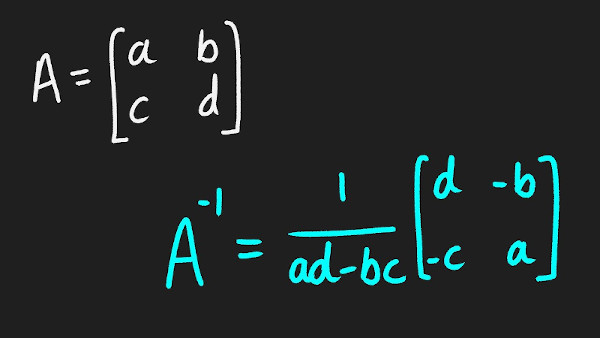 A = [a b
c d]
A⁻¹ = 1/(ad-bc) [d -b
-c a]